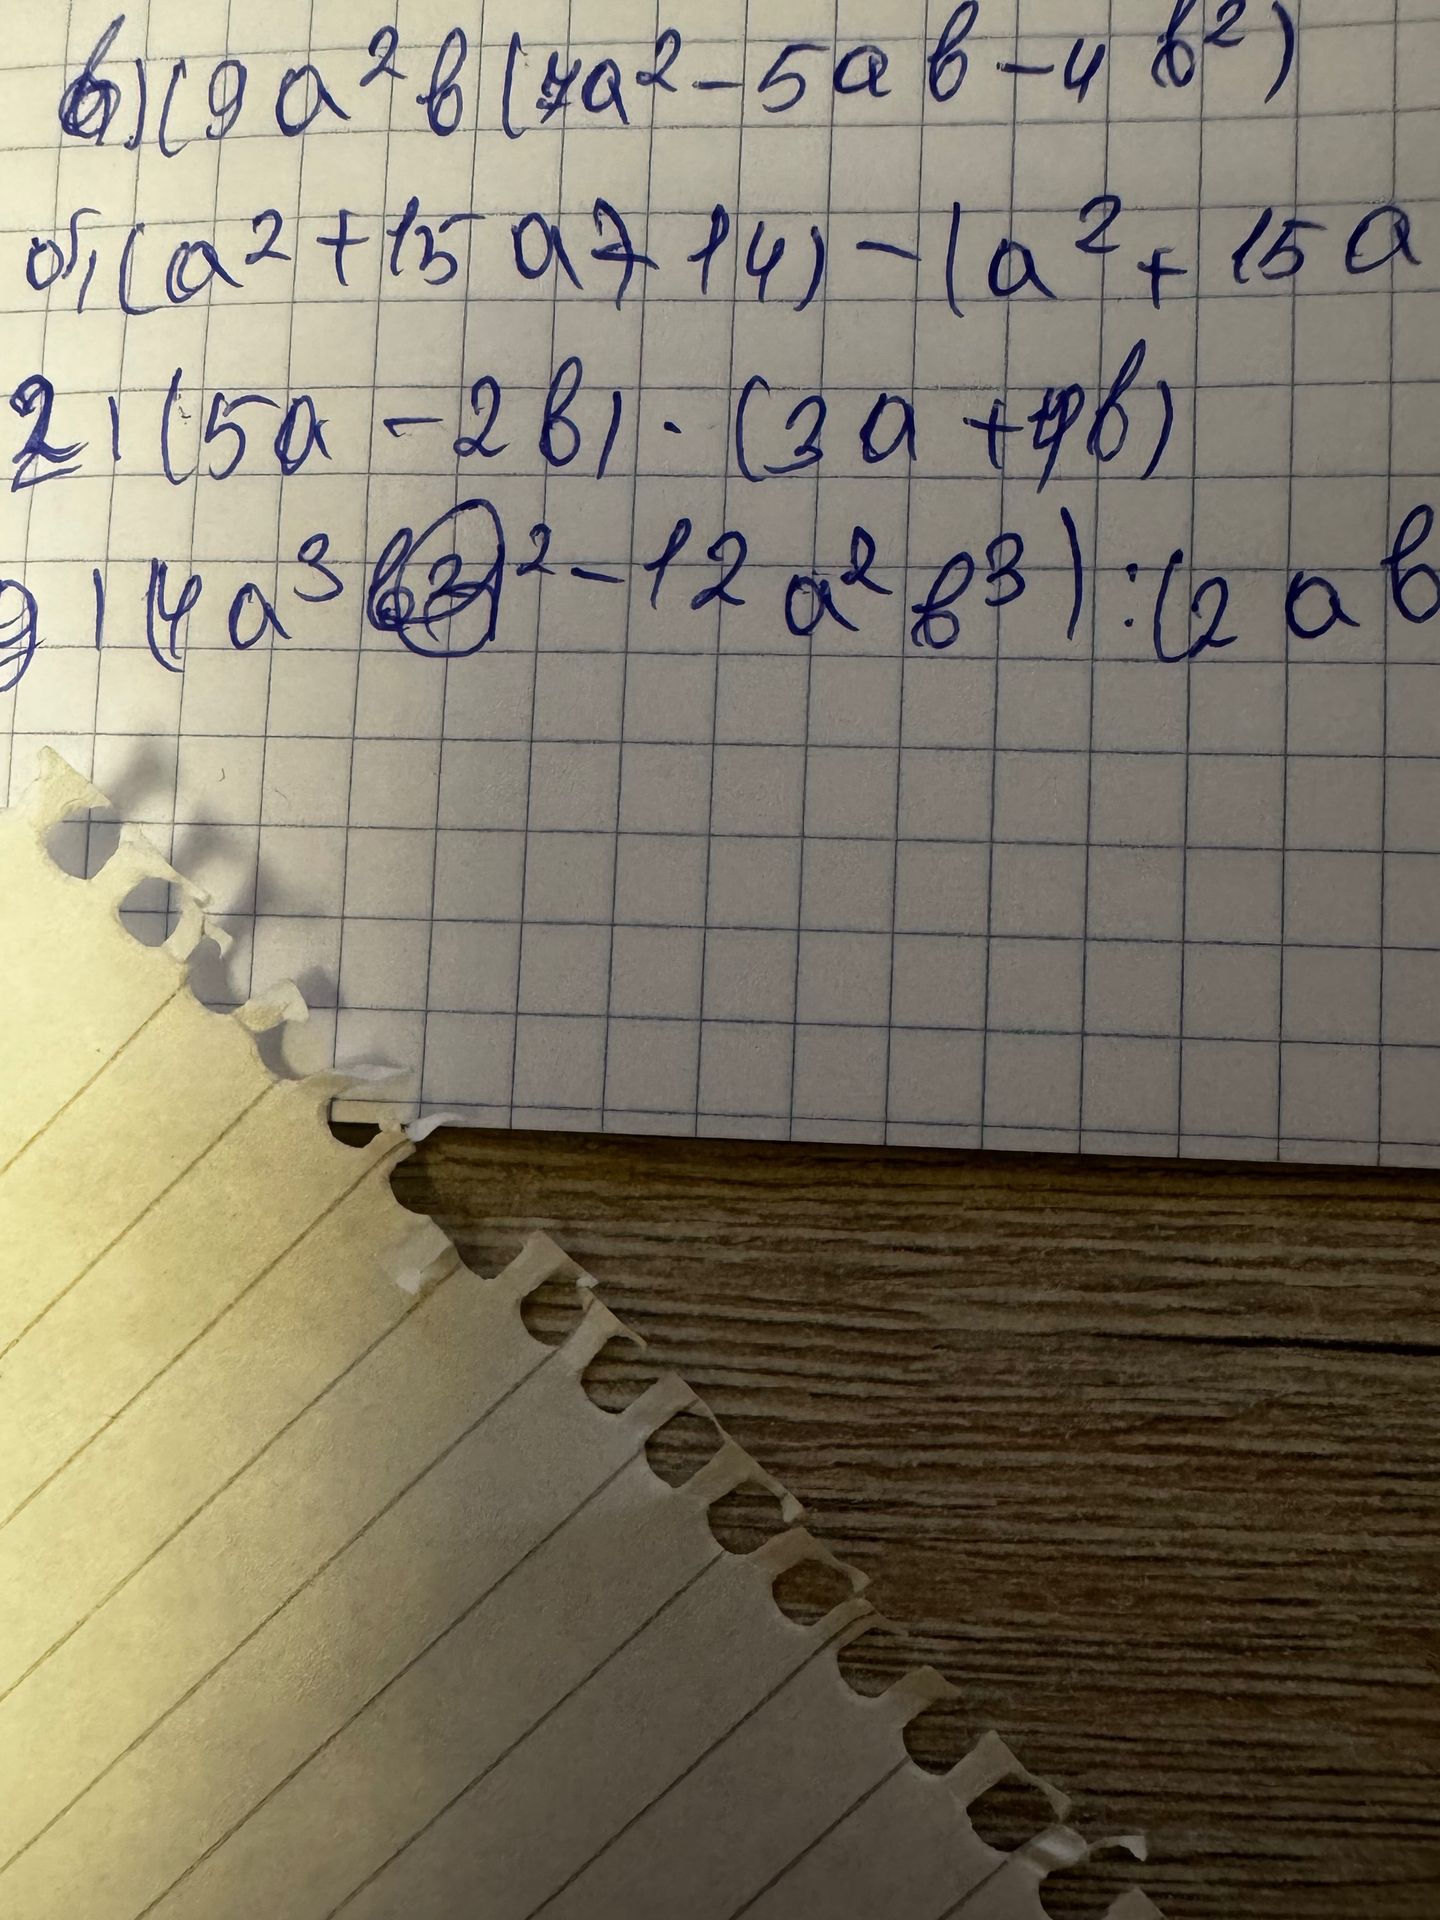 в) (9a²b(7a² - 5ab - 4b²)
б) (a² + 15a + 14) - (a² + 15a
2) (5a - 2b) · (3a + 4b)
д) (4a³b² - 12a²b³) : (2ab